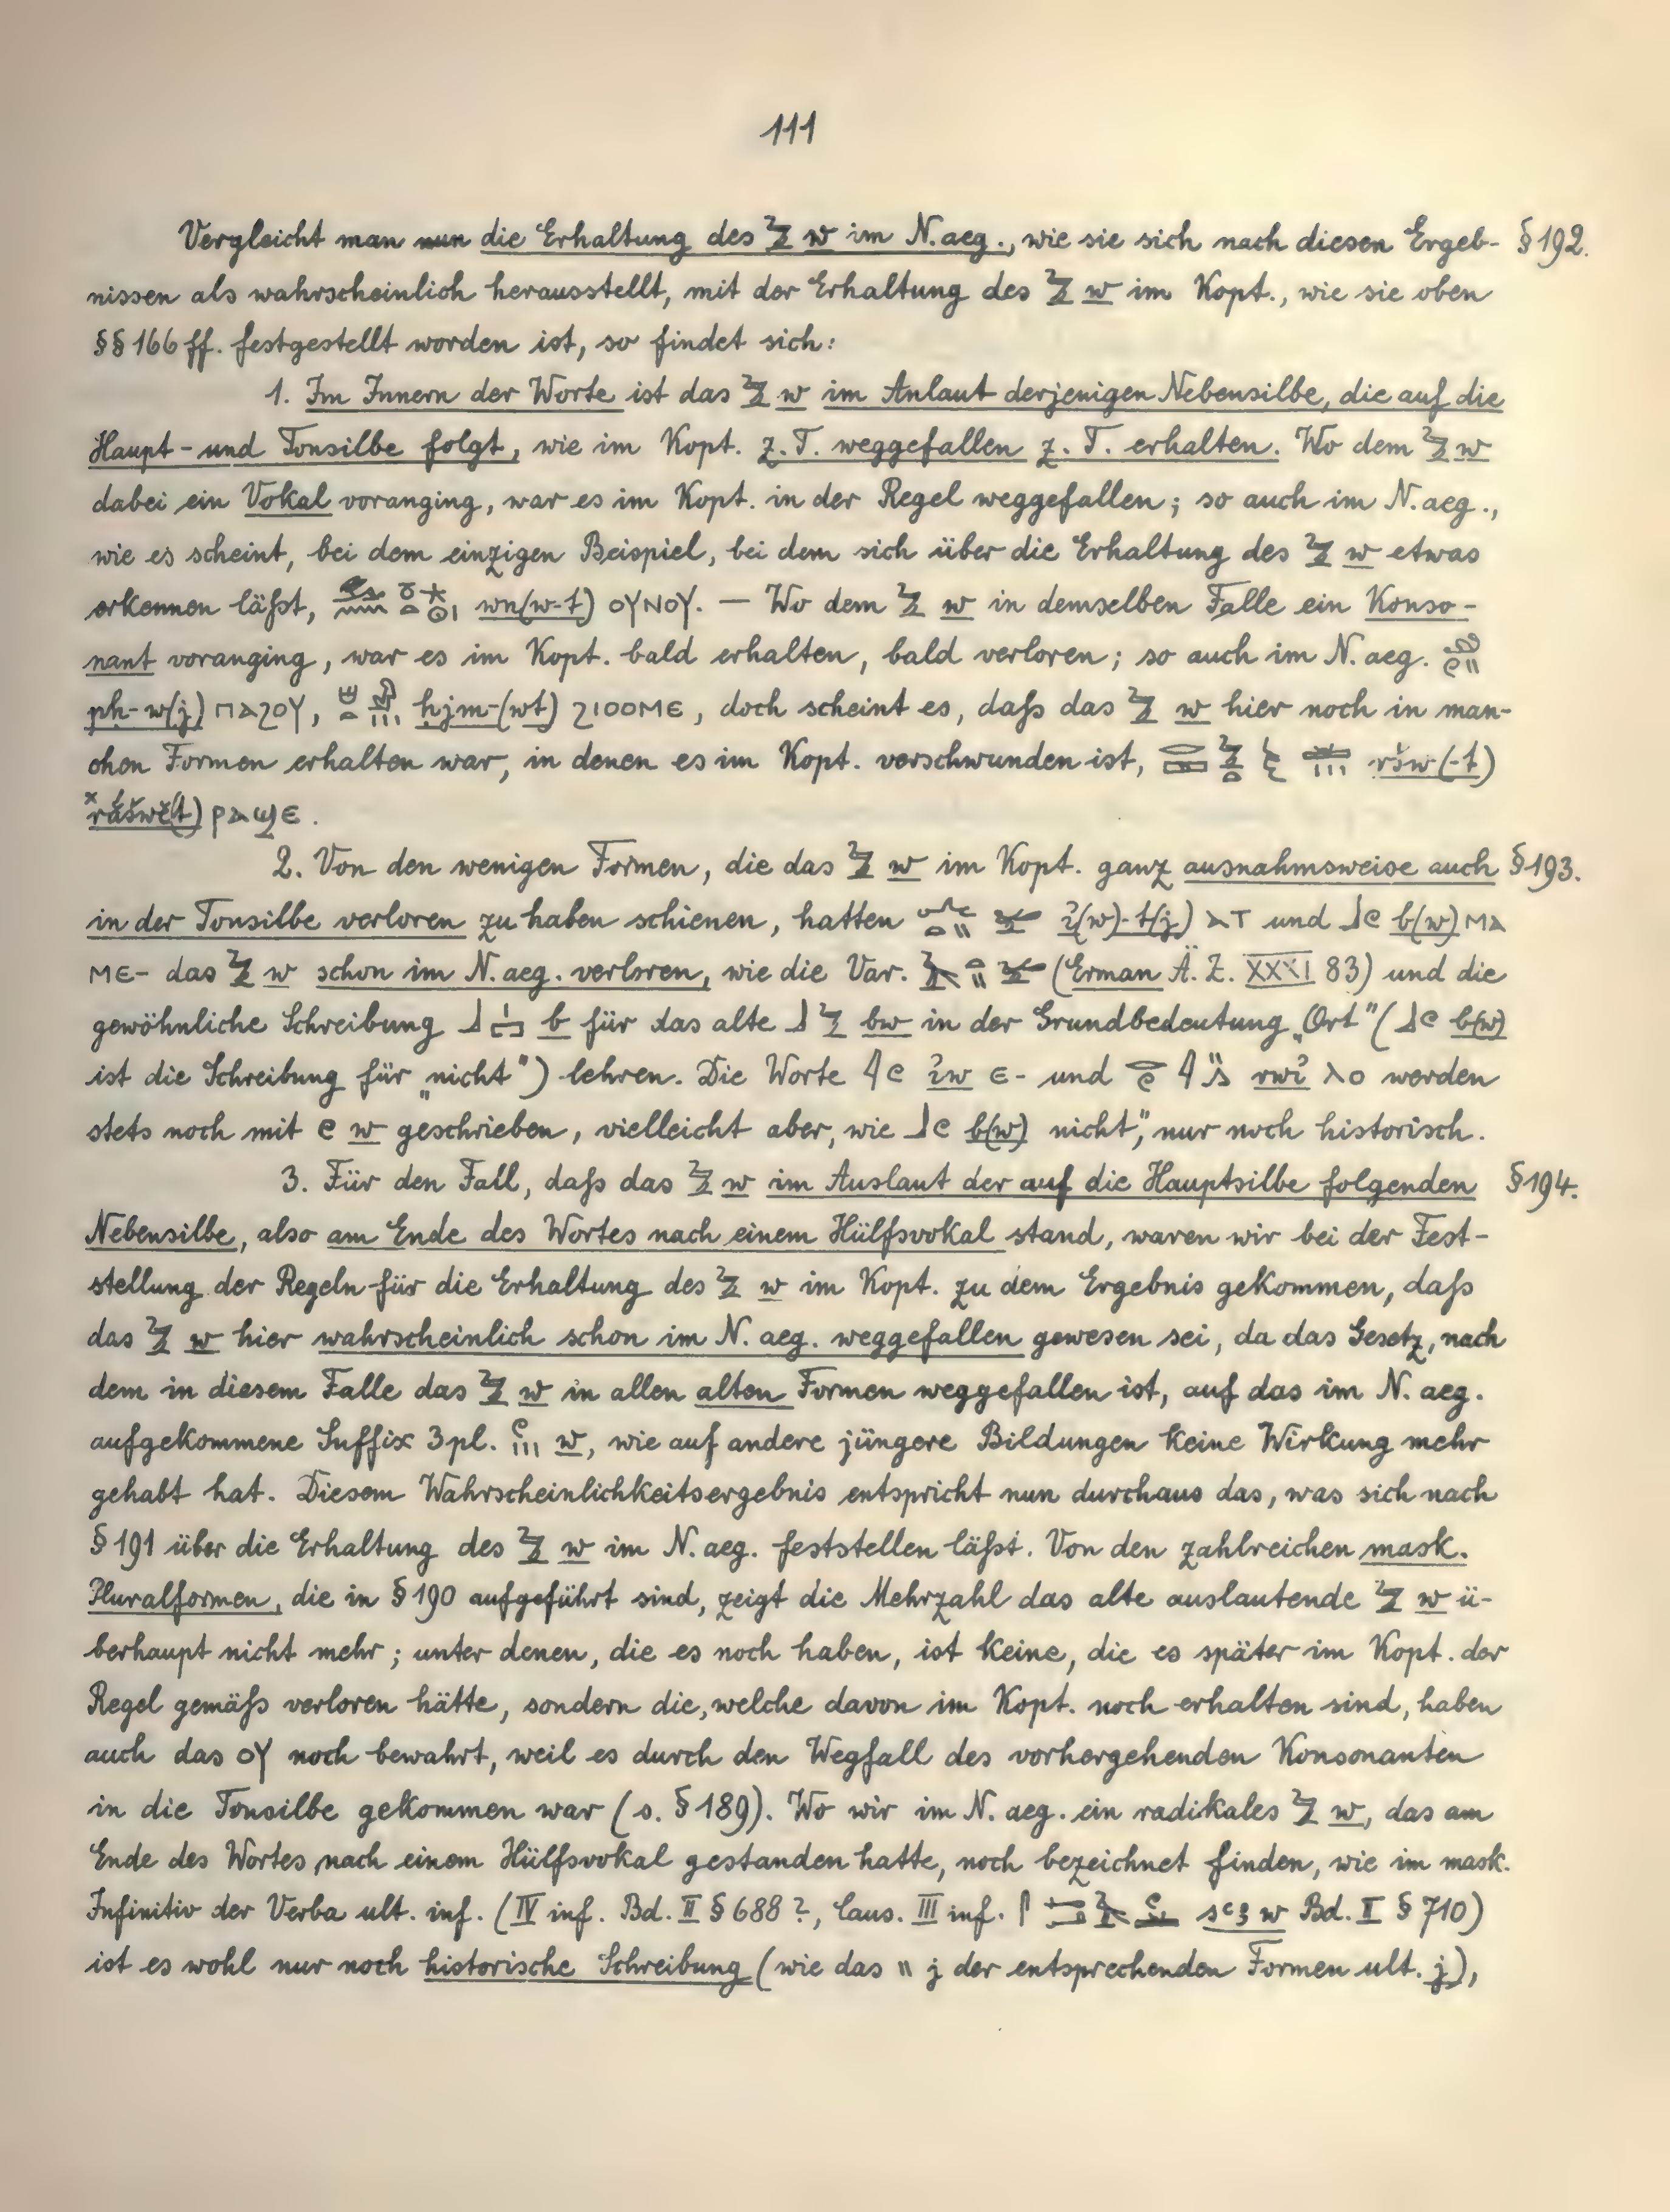 111
Vergleicht man nun die Erhaltung des 𓅱 w im N. aeg., wie sie sich nach diesen Ergeb- § 192.
nissen als wahrscheinlich herausstellt, mit der Erhaltung des 𓅱 w im Kopt., wie sie oben
§§ 166 ff. festgestellt worden ist, so findet sich:
1. Im Innern der Worte ist das 𓅱 w im Anlaut derjenigen Nebensilbe, die auf die
Haupt- und Tonsilbe folgt, wie im Kopt. z. T. weggefallen z. T. erhalten. Wo dem 𓅱 w
dabei ein Vokal voranging, war es im Kopt. in der Regel weggefallen; so auch im N. aeg.,
wie es scheint, bei dem einzigen Beispiel, bei dem sich über die Erhaltung des 𓅱 w etwas
erkennen läßt, wn(w-t) ⲟⲩⲛⲟⲩ. — Wo dem 𓅱 w in demselben Falle ein Konso-
nant voranging, war es im Kopt. bald erhalten, bald verloren; so auch im N. aeg.
pḥ-w(j) ⲡⲁϩⲟⲩ, ḥjm-(wt) ϩⲓⲟⲟⲙⲉ, doch scheint es, daß das 𓅱 w hier noch in man-
chen Formen erhalten war, in denen es im Kopt. verschwunden ist, ršw(-t)
ˣrášwĕ(t) ⲣⲁϣⲉ.
2. Von den wenigen Formen, die das 𓅱 w im Kopt. ganz ausnahmsweise auch § 193.
in der Tonsilbe verloren zu haben schienen, hatten i̓(w)-t(j) ⲁⲧ und 𓃀𓏲 b(w) ⲙⲁ
ⲙⲉ- das 𓅱 w schon im N. aeg. verloren, wie die Var. (Erman Ä. Z. XXXI 83) und die
gewöhnliche Schreibung b für das alte 𓃀𓅱 bw in der Grundbedeutung „Ort" (𓃀𓏲 b(w)
ist die Schreibung für „nicht") lehren. Die Worte 𓇋𓏲 i̓w ⲉ- und rwi̓ ⲗⲟ werden
stets noch mit 𓏲 w geschrieben, vielleicht aber, wie 𓃀𓏲 b(w) „nicht", nur noch historisch.
3. Für den Fall, daß das 𓅱 w im Auslaut der auf die Hauptsilbe folgenden § 194.
Nebensilbe, also am Ende des Wortes nach einem Hülfsvokal stand, waren wir bei der Fest-
stellung der Regeln für die Erhaltung des 𓅱 w im Kopt. zu dem Ergebnis gekommen, daß
das 𓅱 w hier wahrscheinlich schon im N. aeg. weggefallen gewesen sei, da das Gesetz, nach
dem in diesem Falle das 𓅱 w in allen alten Formen weggefallen ist, auf das im N. aeg.
aufgekommene Suffix 3 pl. 𓏲𓏥 w, wie auf andere jüngere Bildungen keine Wirkung mehr
gehabt hat. Diesem Wahrscheinlichkeitsergebnis entspricht nun durchaus das, was sich nach
§ 191 über die Erhaltung des 𓅱 w im N. aeg. feststellen läßt. Von den zahlreichen mask.
Pluralformen, die in § 190 aufgeführt sind, zeigt die Mehrzahl das alte auslautende 𓅱 w ü-
berhaupt nicht mehr; unter denen, die es noch haben, ist keine, die es später im Kopt. der
Regel gemäß verloren hätte, sondern die, welche davon im Kopt. noch erhalten sind, haben
auch das ⲟⲩ noch bewahrt, weil es durch den Wegfall des vorhergehenden Konsonanten
in die Tonsilbe gekommen war (s. § 189). Wo wir im N. aeg. ein radikales 𓅱 w, das am
Ende des Wortes nach einem Hülfsvokal gestanden hatte, noch bezeichnet finden, wie im mask.
Infinitiv der Verba ult. inf. (IV inf. Bd. II § 688 ?, Caus. III inf. sꜥꜣw Bd. II § 710)
ist es wohl nur noch historische Schreibung (wie das 𓏭 j der entsprechenden Formen ult. j),